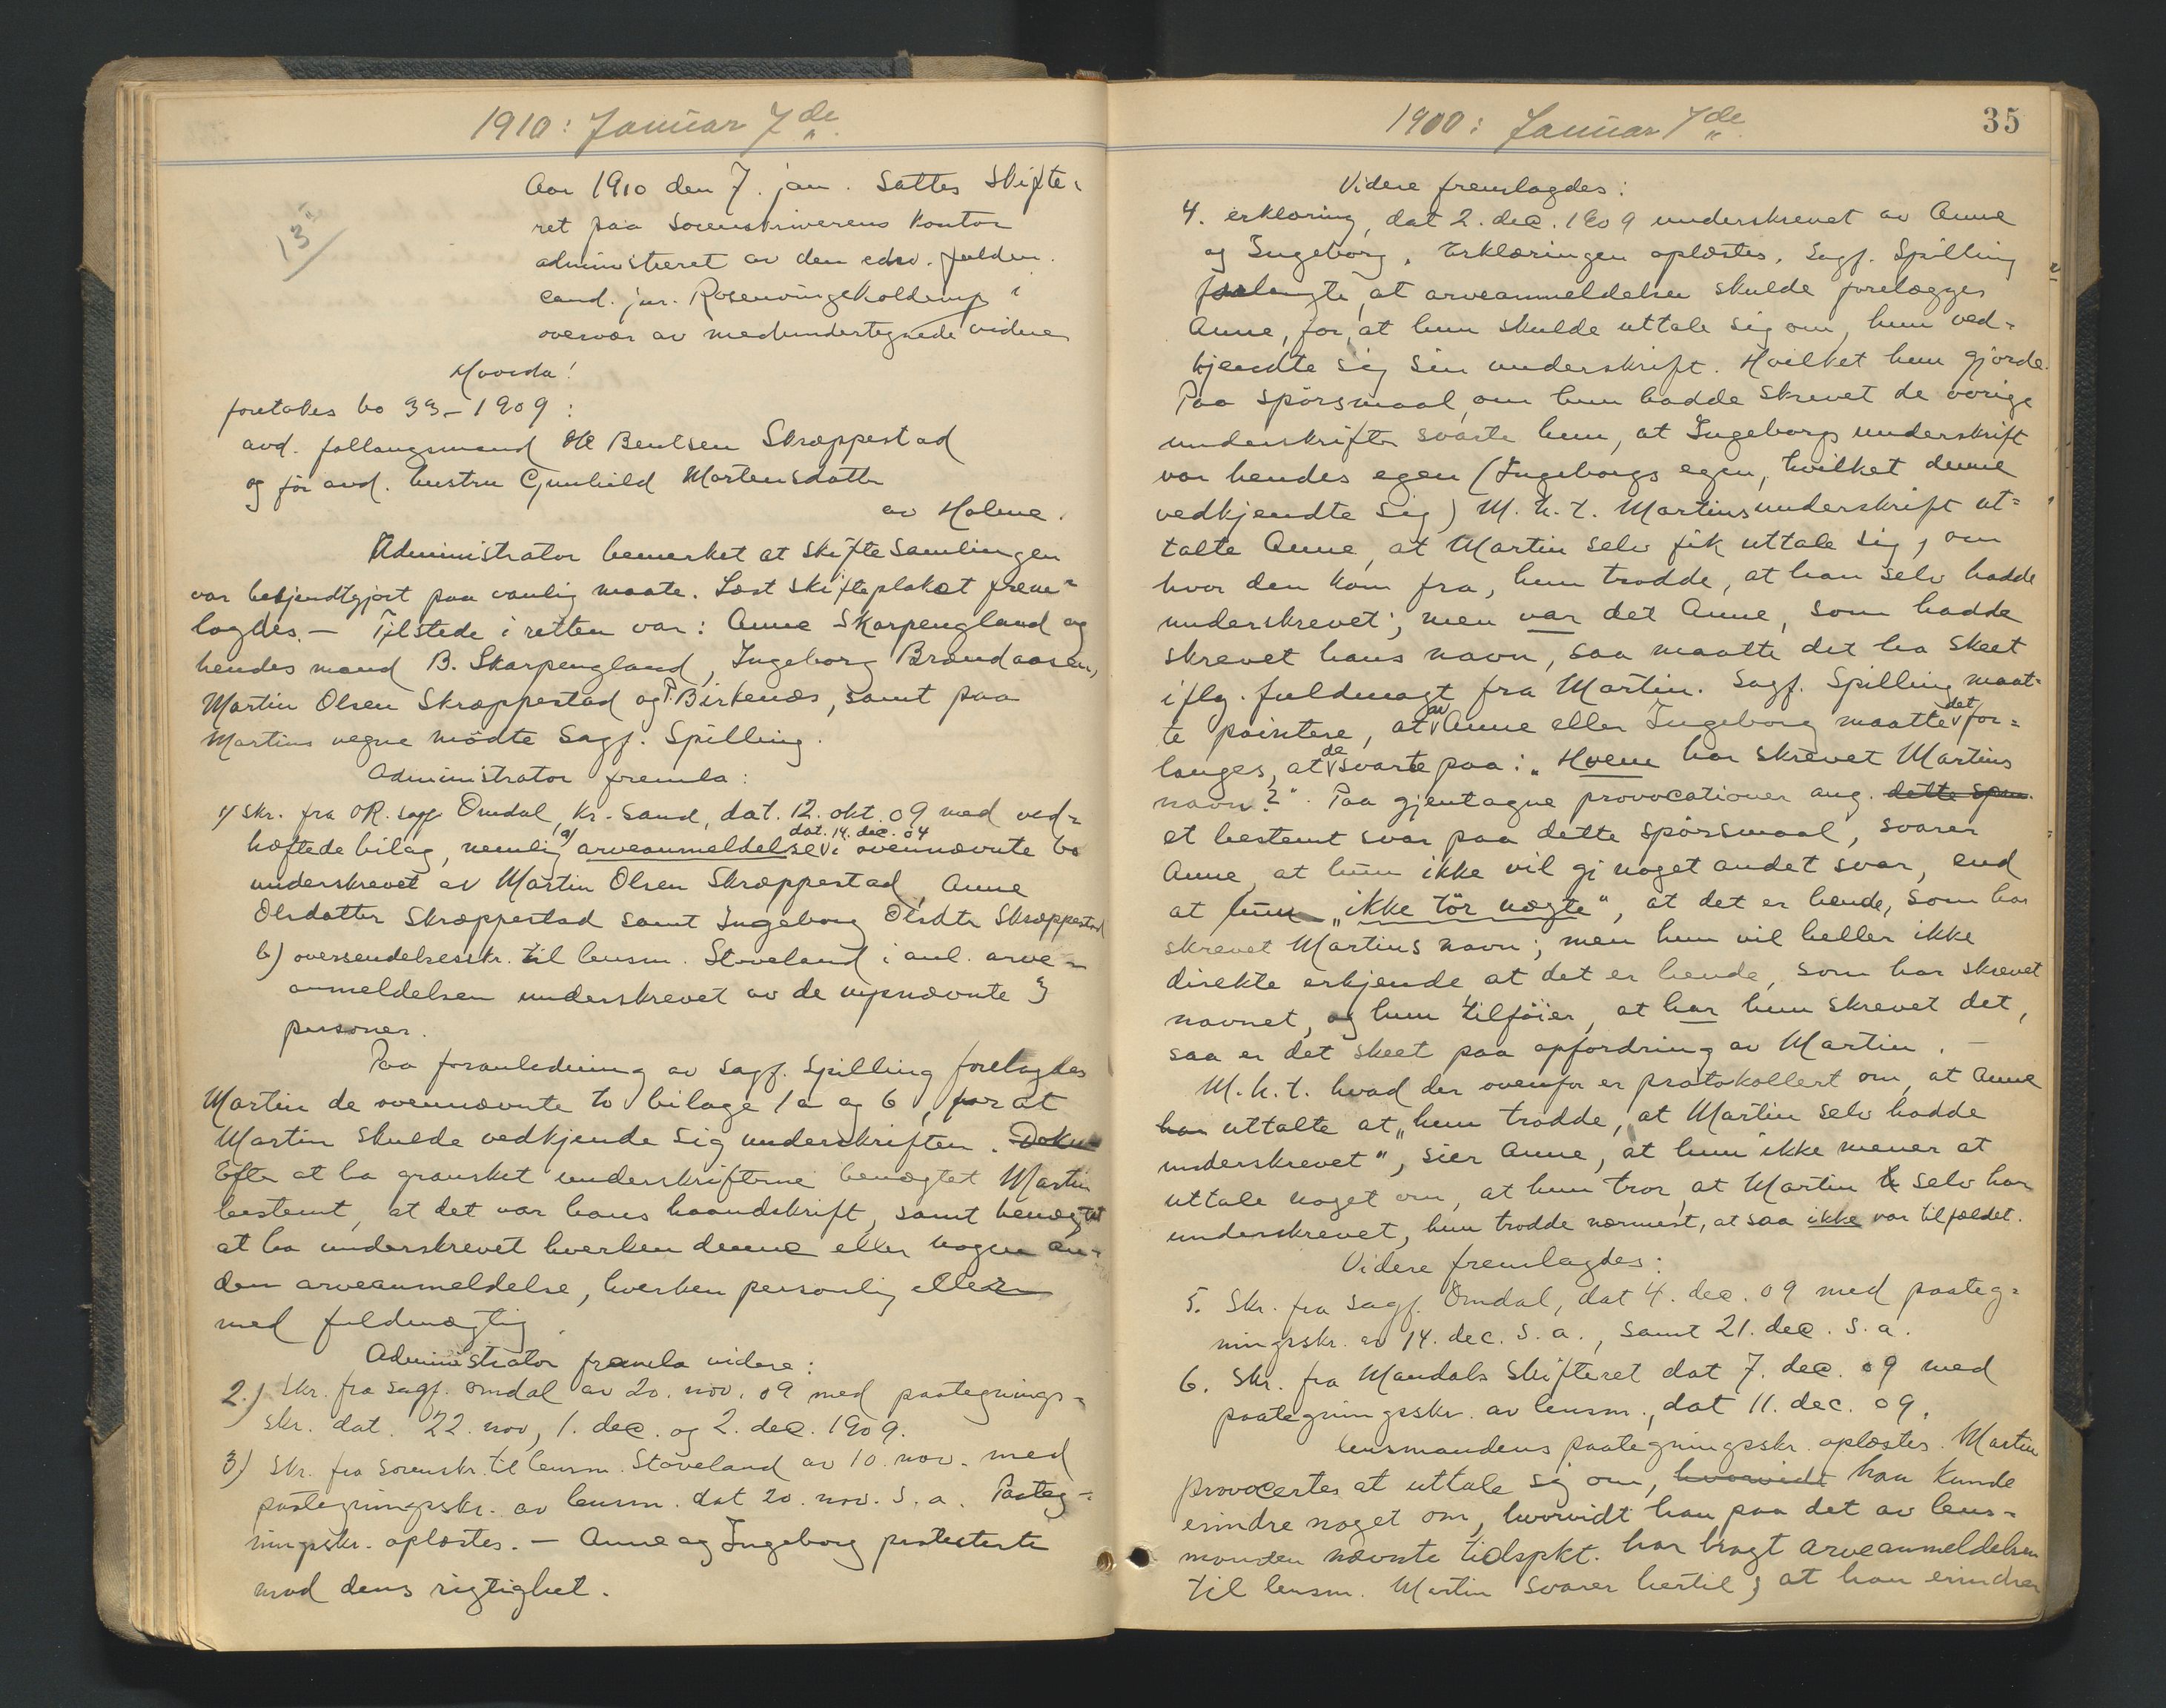 1910: Januar 7de
13
Aar 1910 den 7. jan. sattes Skifte-
ret paa Sorenskriverens Kontor
administreret av den edsv. fuldm.
cand. jur. Rosenvinge Kolderup i
overvær av medundertegnede vidne
Hvorda!
foretokes bo 33-1909:
avd. follaugsmand Ole Bentsen Skræppestad
og før avd. hustru Gunhild Martensdatter
av Holme.
Administrator bemerket at skiftesamlingen
var bekjendtgjort paa vanlig maate. Læst skifteplakat frem-
lagdes. — Tilstede i retten var: Anne Skarpengland og
hendes mand B. Skarpengland, Ingeborg Brændaasen,
Martin Olsen Skræppestad og Birkenæs, samt paa
Martins vegne mødte Sagf. Spilling.
Administrator fremla:
1) Skr. fra OR. sagf. Omdal, Kr.sand, dat. 12. okt. 09 med ved-
hæftede bilag, nemlig a) arveanmeldelse dat. 14. dec. 04 i ovennævnte bo
underskrevet av Martin Olsen Skræppestad, Anne
Olsdatter Skræppestad samt Ingeborg Olsdtr Skræppestad
b) oversendelsesskr. til lensm. Stoveland i anl. arve-
anmeldelsen underskrevet av de nysnævnte 3
personer.
Paa foranledning av sagf. Spilling forelagdes
Martin de ovennævnte to bilage 1a og b, for at
Martin skulde vedkjende sig underskriften. Doku
Efter at ha gransket underskrifterne benægtet Martin
bestemt, at det var hans haandskrift, samt benægtet
at ha underskrevet hverken denne eller nogen an-
den arveanmeldelse, hverken personlig eller
med fuldmægtig.
Administrator fremla videre:
2.) Skr. fra sagf. Omdal av 20. nov. 09 med paategnings-
skr. dat. 22. nov, 1. dec. og 2. dec. 1909.
3) Skr. fra Sorenskr. til lensm. Stoveland av 10. nov. med
paategningsskr. av lensm. dat 20. nov. s. a. Paateg-
ningsskr. oplæstes. — Anne og Ingeborg protesterte
mod dens rigtighet.
1900: Januar 7de
35
Videre fremlagdes:
4. erklæring, dat 2. dec. 1909 underskrevet av Anne
og Ingeborg. Erklæringen oplæstes. Sagf. Spilling
forlangte, at arveanmeldelsen skulde forelægges
Anne, for, at hun skulde uttale sig om, hun ved-
kjendte sig sin underskrift. Hvilket hun gjorde.
Paa spørsmaal, om hun hadde skrevet de øvrige
underskrifter svarte hun, at Ingeborgs underskrift
var hendes egen (Ingeborgs egen, hvilket denne
vedkjendte sig) M. h. t. Martins underskrift ut-
talte Anne, at Martin selv fik uttale sig, om
hvor den kom fra, hun trodde, at han selv hadde
underskrevet; men var det Anne, som hadde
skrevet hans navn, saa maatte det ha skeet
iflg. fuldmagt fra Martin. Sagf. Spilling maat-
te pointere, at av Anne eller Ingeborg maatte det for-
langes, at de svarte paa: "Hvem har skrevet Martins
navn?". Paa gjentagne provocationer ang. dette spm.
et bestemt svar paa dette spørsmaal, svarer
Anne, at hun ikke vil gi noget andet svar, end
at hun "ikke tør nægte", at det er hende, som har
skrevet Martins navn; men hun vil heller ikke
direkte erkjende at det er hende, som har skrevet
navnet, og hun tilføier, at har hun skrevet det,
saa er det skeet paa opfordring av Martin. —
M. h. t. hvad der ovenfor er protokollert om, at Anne
har uttalte at "hun trodde, at Martin selv hadde
underskrevet", sier Anne, at hun ikke mener at
uttale noget om, at hun tror, at Martin selv har
underskrevet, hun trodde nærmest, at saa ikke var tilfældet.
Videre fremlagdes:
5. Skr. fra sagf. Omdal, dat 4. dec. 09 med paateg-
ningsskr. av 14. dec. s. a., samt 21. dec. s. a.
6. Skr. fra Mandals Skifteret dat 7. dec. 09 med
paategningsskr. av lensm., dat 11. dec. 09.
Lensmandens paategningsskr. oplæstes. Martin
provocertes at uttale sig om, hvorvidt han kunde
erindre noget om, hvorvidt han paa det av lens-
manden nævnte tidspkt. har bragt arveanmeldelsen
til lensm. Martin svarer hertil, at han erindrer